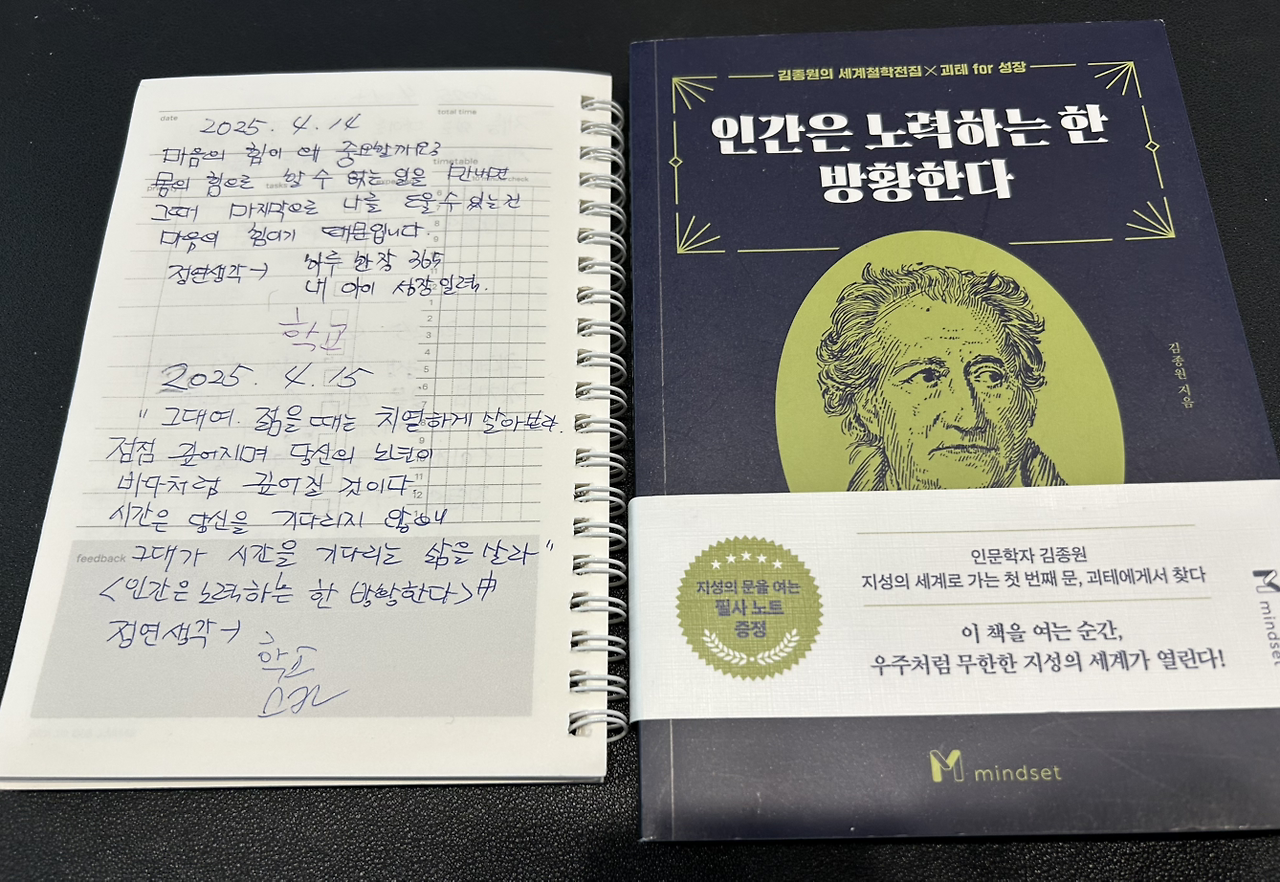 date
total time
2025. 4. 14
마음의 힘이 왜 중요할까요?
timetable
몸의 힘으로 할 수 없는 일을 만나면
tasks
check
그때 마지막으로 나를 도울 수 있는 건
마음의 힘이기 때문입니다.
정연생각→ 하루 한 장 365
내 아이 성장일력.
학교
2025. 4. 15
" 그대여. 젊을 때는 치열하게 살아보라.
점점 깊어지며 당신의 노년이
바다처럼 깊어질 것이다
시간은 당신을 기다리지 않으니
feedback
그대가 시간을 기다리는 삶을 살라"
<인간은 노력하는 한 방황한다>中
정연생각→
학교
김종원의 세계철학전집×괴테 for 성장
인간은 노력하는 한
방황한다
김종원 지음
지성의 문을 여는
필사 노트
증정
인문학자 김종원
지성의 세계로 가는 첫 번째 문, 괴테에게서 찾다
이 책을 여는 순간,
우주처럼 무한한 지성의 세계가 열린다!
mindset
M mindset